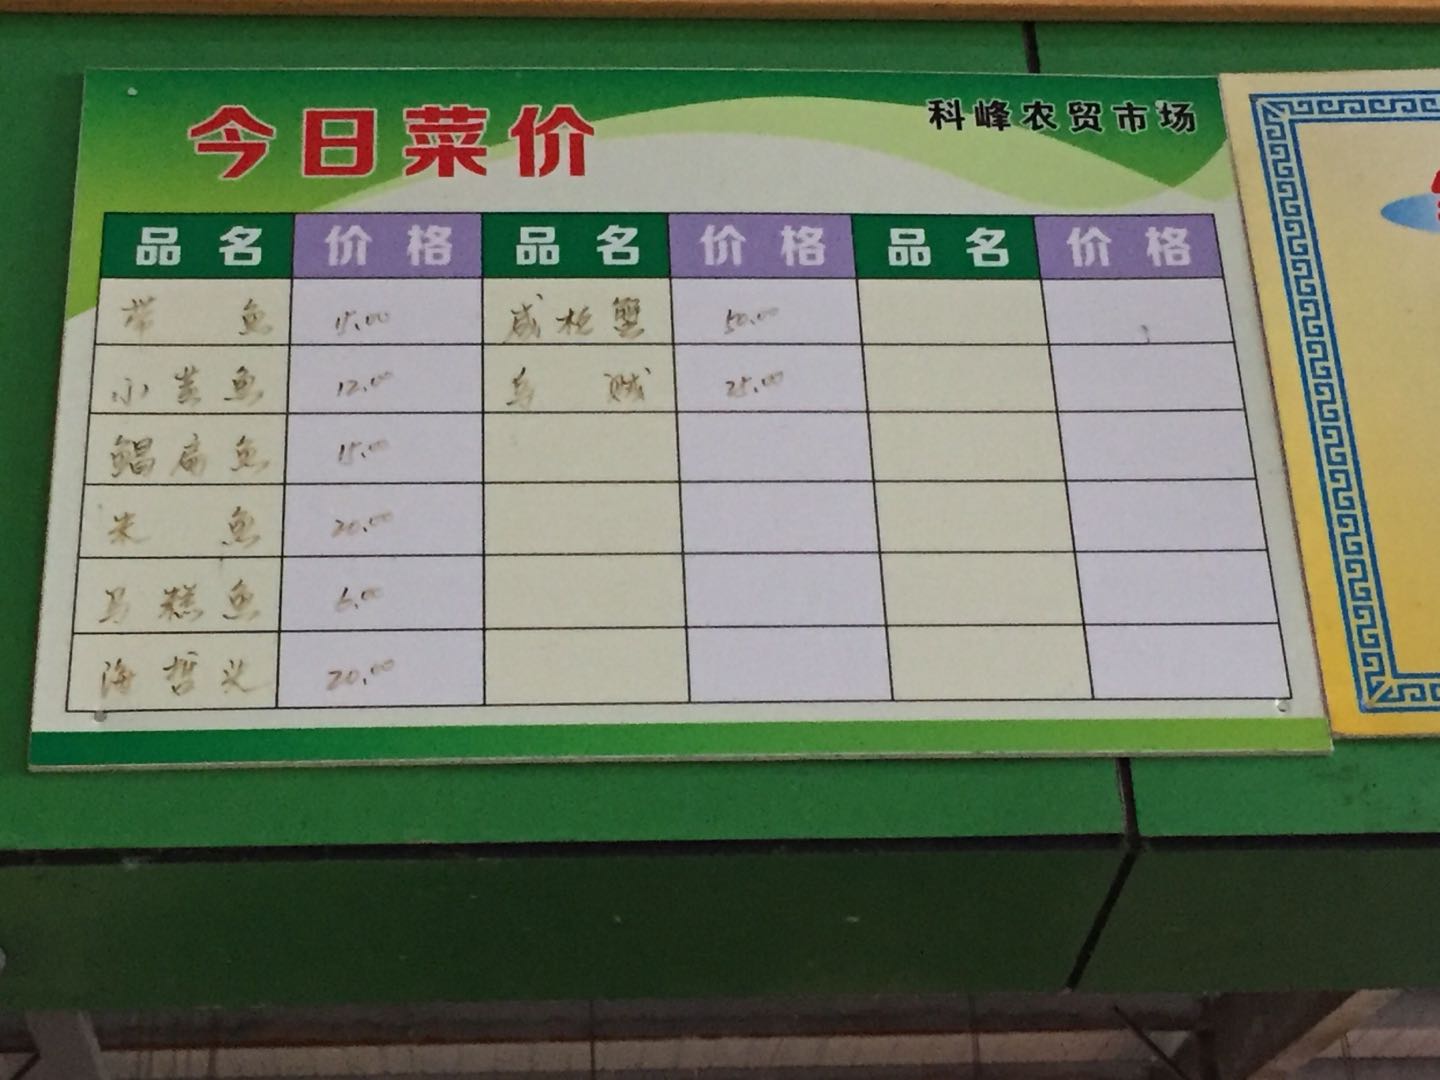 今日菜价
科峰农贸市场
品名 价格 品名 价格 品名 价格
带鱼 15.00 咸枪蟹 50.00
小黄鱼 12.00 乌贼 25.00
鲳扁鱼 15.00
米鱼 20.00
马糕鱼 6.00
海哲义 20.00